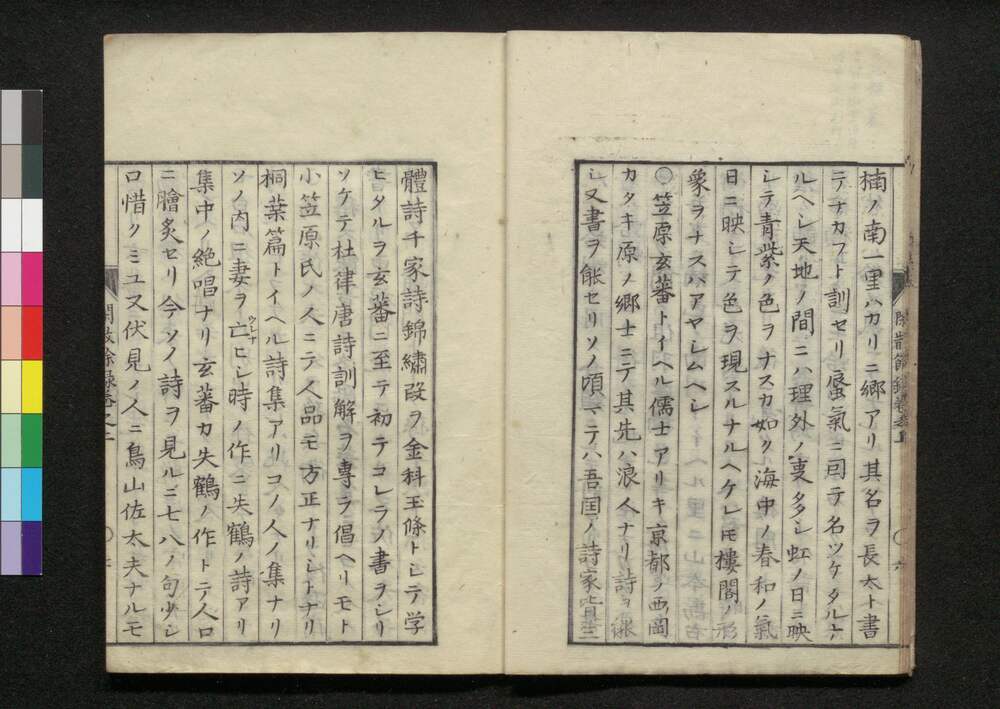 楠ノ南一里ハカリニ郷アリ其名ヲ長太ト書
テナカフト訓セリ蜃氣ニ因テ名ツケタルナ
ルヘシ天地ノ間ニハ理外ノ事多シ虹ノ日ニ映
シテ青紫ノ色ヲナスカ如ク海中ノ春和ノ氣
日ニ映シテ色ヲ現スルナルヘケレ𪜈樓閣ノ形
象ヲナスハアヤシムヘシ
○笠原玄蕃トイヘル儒士アリキ京都ノ西岡
カタキ原ノ郷士ニテ其先ハ浪人ナリ詩ヲ
シ又書ヲ能セリソノ頃マテハ吾国ノ詩家皆三
體詩千家詩錦繡段ヲ金科玉條トシテ学
ヒタルヲ玄蕃ニ至テ初テコレラノ書ヲシリ
ソケテ杜律唐詩訓解ヲ専ラ倡ヘリモト
小笠原氏ノ人ニテ人品モ方正ナリシトナリ
桐葉篇トイヘル詩集アリコノ人ノ集ナリ
ソノ内ニ妻ヲ亡ヒシ時ノ作ニ失鶴ノ詩アリ
集中ノ絶唱ナリ玄蕃カ失鶴ノ作トテ人口
ニ膾炙セリ今ソノ詩ヲ見ルニ七八ノ句少シ
口惜クミユ又伏見ノ人ニ鳥山佐太夫ナルモ
閑散餘録卷之二